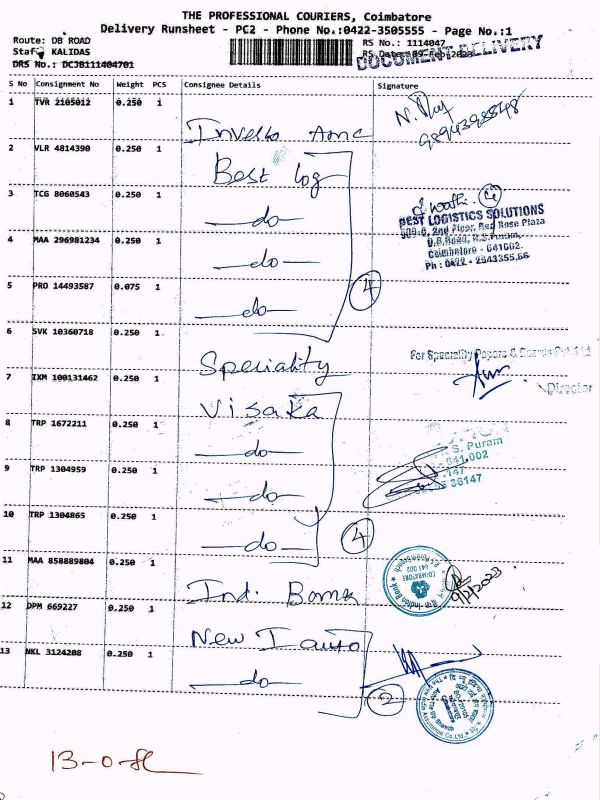 THE PROFESSIONAL COURIERS, Coimbatore
Delivery Runsheet - PC2 - Phone No.:0422-3505555 - Page No.:1
Route: DB ROAD
RS No.: 1114047
Staff KALIDAS
DRS No.: DCJB111404701
DOCUMENT DELIVERY
S No Consignment No Weight PCS Consignee Details Signature
1 TVR 2105012 0.250 1
9894398848
2 VLR 4814390 0.250 1 Best log
3 TCG 8060543 0.250 1 do
BEST LOGISTICS SOLUTIONS
2nd Floor, Red Rose Plaza
D.B.Road, R.S.Puram,
Coimbatore - 641002.
4 MAA 296981234 0.250 1 do
5 PRO 14493587 0.075 1 do
4
6 SVK 10360718 0.250 1 Speciality
For Speciality Papers &
Director
7 IXM 100131462 0.250 1 Visaka
8 TRP 1672211 0.250 1 do
S. Puram
641 002
9 TRP 1304959 0.250 1 do
36147
10 TRP 1304865 0.250 1 do
4
11 MAA 858889804 0.250 1 Ind. Bank
Indian Bank
COIMBATORE
641 002
9/2/2023
12 DPM 669227 0.250 1 New I
13 NKL 3124208 0.250 1 do
2